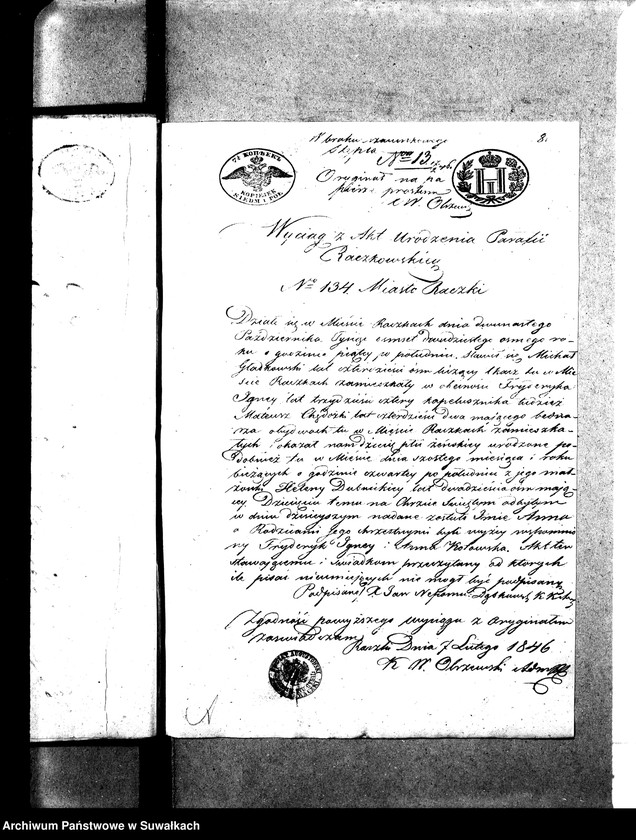 W braku stemplowego
8.
Stępla
Nro 13
7½ КОПѢЕКЪ
KOPIEJEK
SIEDM I PÓŁ
Oryginał na pa
pierze prostym
K W Olszewski
Wyciąg z Akt Urodzenia Parafii
Raczkowskiey
Nro 134 Miasto Raczki
Działo się w Mieście Raczkach dnia dwunastego
Października Tysiąc osmset dwudziestego osmego ro-
ku o godzinie piątey po południu. Stawił się Michał
Gładkowski lat czterdzieści ośm liczący tkacz tu w Mie
ście Raczkach zamieszkały w obecności Fryderyka
Igney lat trzydzieści cztery kapelusznika tudzież
Mateusz lat czterdzieści dwa mającego bedna-
rza obydwóch tu w Mieście Raczkach zamieszka-
łych i okazał nam dziecię płci żeńskiey urodzone po-
dobnież tu w Mieście dnia szostego miesiąca i roku
bieżących o godzinie czwartey po południu z jego mał
żonki Heleny lat dwadzieścia ośm mają-
cey. Dziecięciu temu na Chrzcie Świętym odbytym
w dniu dzisieyszym nadane zostało Imie Anna
a Rodzicami Jego chrzestnymi byli wyżey wspomnio
ny Fryderyk Igney i Anna Kotowska. Akt ten
stawającemu i świadkom przeczytany od których
ile pisać nieumiejących nie mogł być podpisany
Podpisano X Jan Nepomu:
Zgodność powyższego wyciągu z Oryginałem
zaswiadczam
Raczki Dnia 7 Lutego 1846
K W. Olszewski
Archiwum Państwowe w Suwałkach